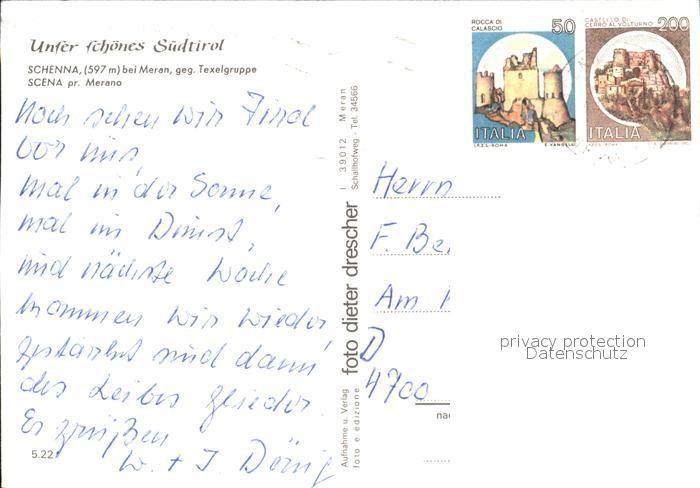 Unser schönes Südtirol
SCHENNA, (597 m) bei Meran, geg. Texelgruppe
SCENA pr. Merano
Noch sehen wir Tirol
vor uns,
mal in der Sonne,
mal im Dunst,
und nächste Woche
kommen wir wieder,
gestärkt sind dann
des Leibes Glieder.
Es grüßen
W. + I.
5.22
Aufnahme u. Verlag
foto e edizione
foto dieter drescher
I 39012 Meran
Schallhofweg - Tel. 34566
ROCCA DI
CALASCIO
50
ITALIA
I.P.Z.S. - ROMA
E. VANGELLI
CASTELLO DI
CERRO AL VOLTURNO
200
ITALIA
I.P.Z.S. - ROMA
Herrn
F. Be
Am
D
4700
privacy protection
Datenschutz